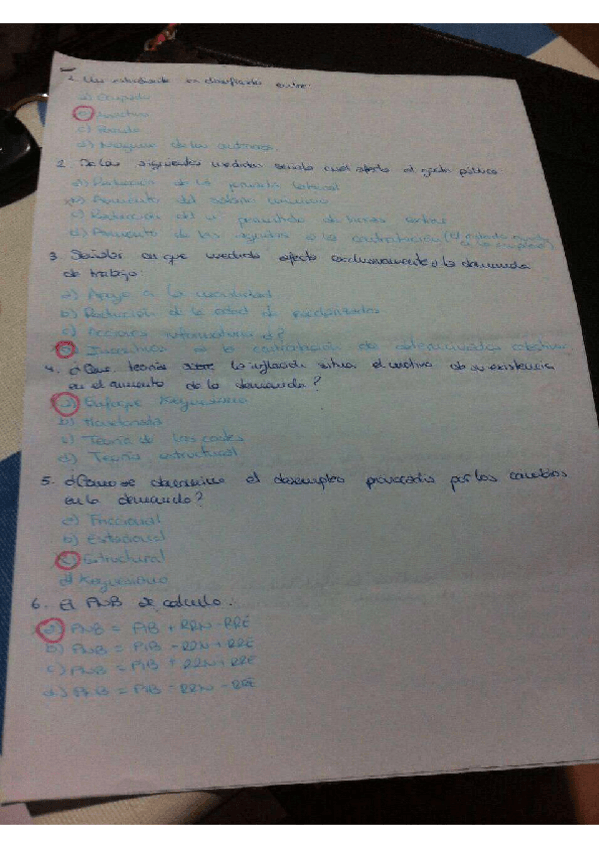 1. Un estudiante es clasificado entre:
a) Ocupado
b) Inactivo
c) Parado
d) Ninguna de las anteriores.
2. De las siguientes medidas señala cual afecta al gasto público
a) Reducción de la jornada laboral
b) Aumento del salario
c) Reducción del nº de horas extras
d) Aumento de las ayudas a la contratación (
3. Señalar en que medida afecta exclusivamente a la demanda
de trabajo:
a) Apoyo a la movilidad
b) Reducción de la edad de
c) Acciones informativas
d) Incentivos a la contratación de determinados colectivos
4. ¿Que teoría sobre la inflación situa el motivo de su existencia
en el aumento de la demanda?
a) Enfoque Keynesiano
b) Monetarista
c) Teoría de los costes
d) Teoría estructural
5. ¿Como se denomina el desempleo provocado por los cambios
en la demanda?
a) Friccional
b) Estacional
c) Estructural
d) Keynesiano
6. El PNB se calcula:
a) PNB = PIB + RRN - RRE
b) PNB = PIB - RRN + RRE
c) PNB = PIB + RRN + RRE
d) PNB = PIB - RRN - RRE